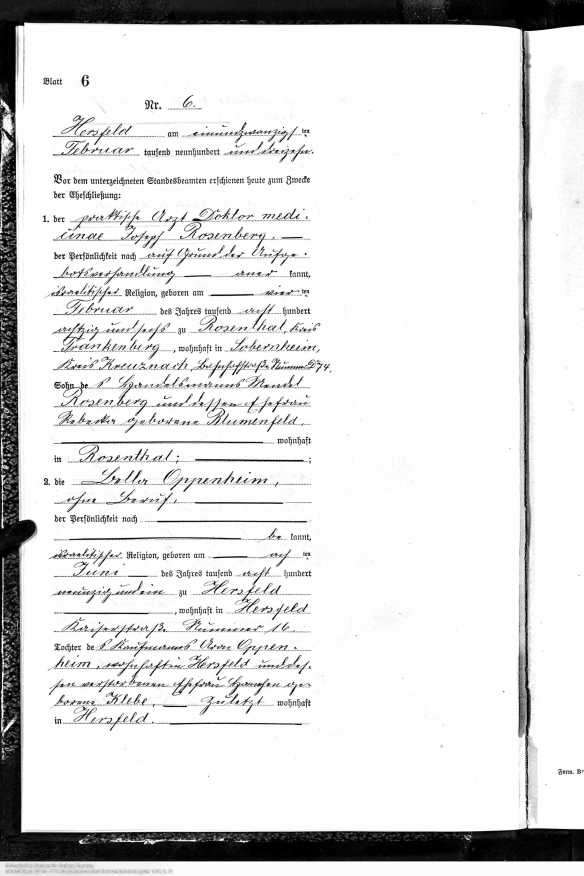 Blatt 6
Nr. 6.
Hersfeld am einundzwanzigsten
Februar tausend neunhundert unddreizehn.
Vor dem unterzeichneten Standesbeamten erschienen heute zum Zwecke
der Eheschließung:
1. der praktische Arzt Doktor medi-
cinae Joseph Rosenberg,
der Persönlichkeit nach auf Grund der Aufge-
botsverhandlung aner kannt,
israelitischer Religion, geboren am vierten
Februar des Jahres tausend acht hundert
achtzig und sechs zu Rosenthal, Kreis
Frankenberg, wohnhaft in Sobernheim,
Kreis Kreuznach, Bahnhofstraße Nummer 74.
Sohn des Handelsmanns Mendel
Rosenberg und dessen Ehefrau
Rebecka geborene Blumenfeld,
wohnhaft
in Rosenthal;
2. die Bella Oppenheim,
ohne Beruf,
der Persönlichkeit nach
be kannt,
israelitischer Religion, geboren am achten
Juni des Jahres tausend acht hundert
neunzig und ein zu Hersfeld
, wohnhaft in Hersfeld
Kaiserstraße Nummer 16.
Tochter des Kaufmanns Aron Oppen-
heim, wohnhaft in Hersfeld und des-
sen verstorbenen Ehefrau ge-
borene Klebe, zuletzt wohnhaft
in Hersfeld.
Form. B